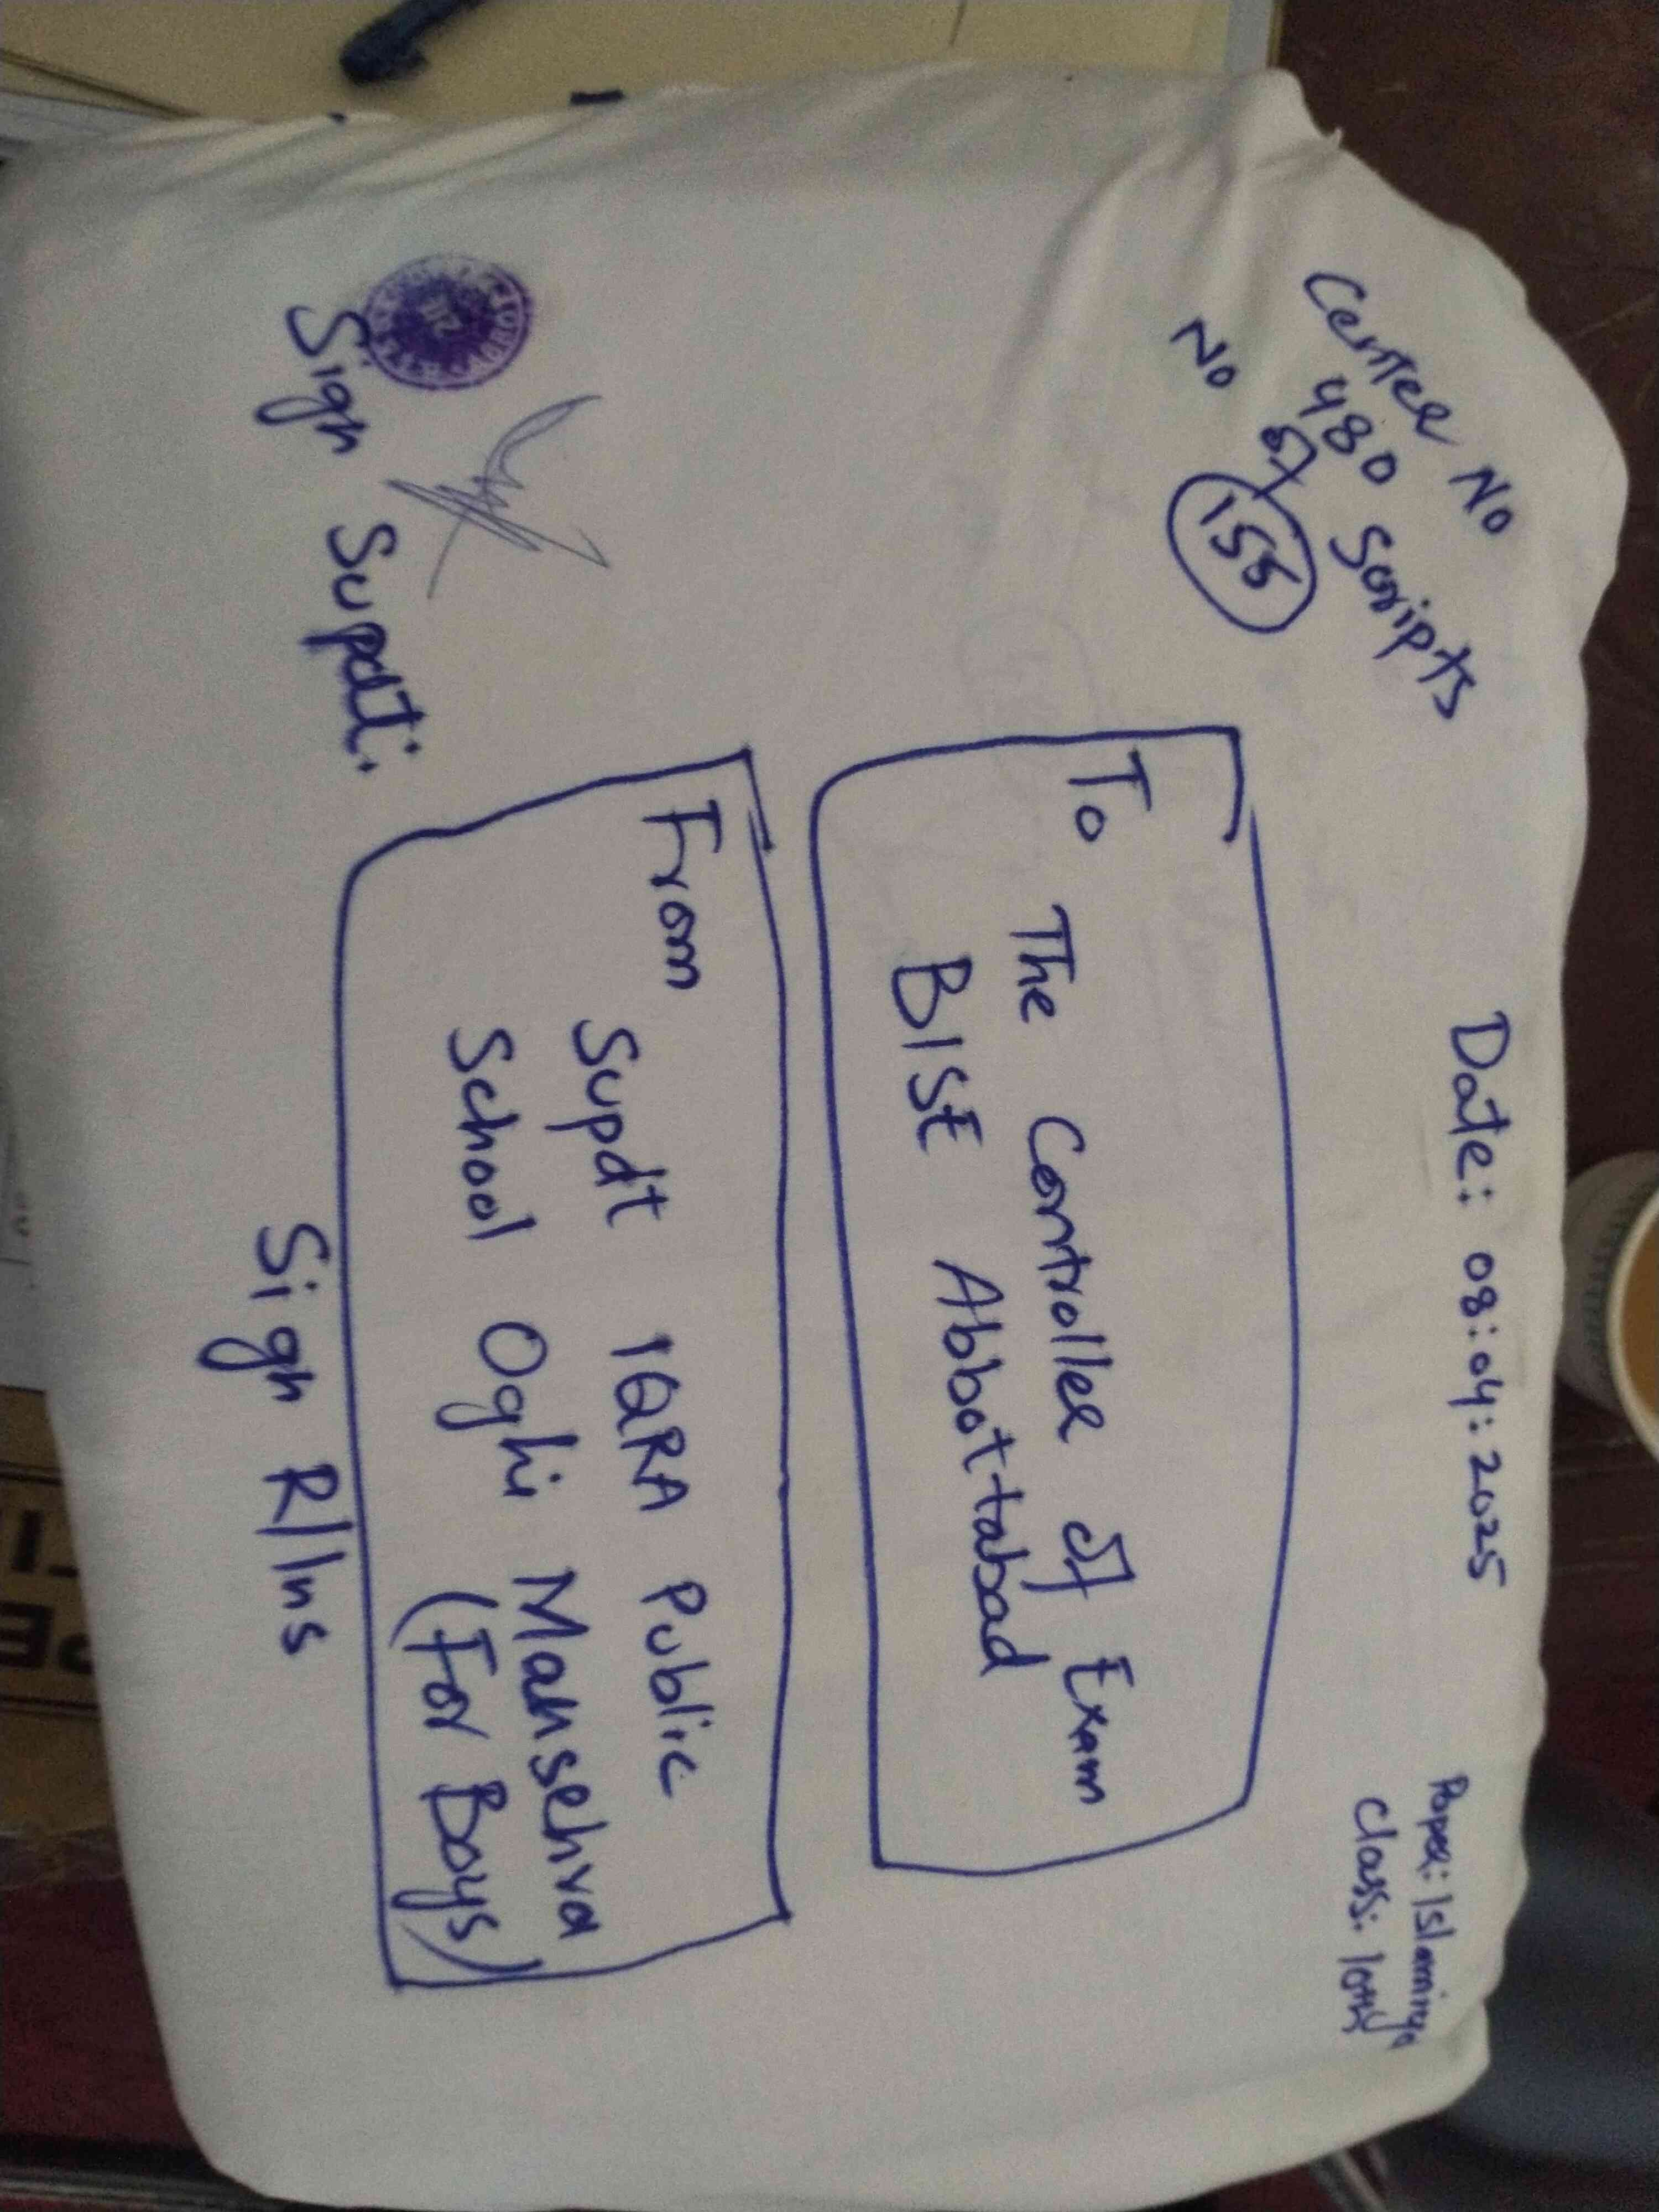 Center No
480
No of Scripts
155
Date: 08:04:2025
Paper: Islamiyat
Class: 10th
To
The Controller of Exam
BISE Abbottabad
From
Supdt IQRA Public
School Oghi Mansehra
(For Boys)
Sign Supdt:
Sign R/Ins